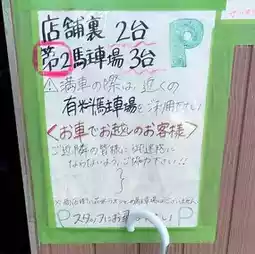 店舗裏 2台
P
第2駐車場 3台
⚠満車の際は、近くの
有料駐車場をご利用下さい
<お車でお越しのお客様>
ご近隣の皆様に御迷惑に
ならないよう、ご協力下さい!!
P スタッフにお P